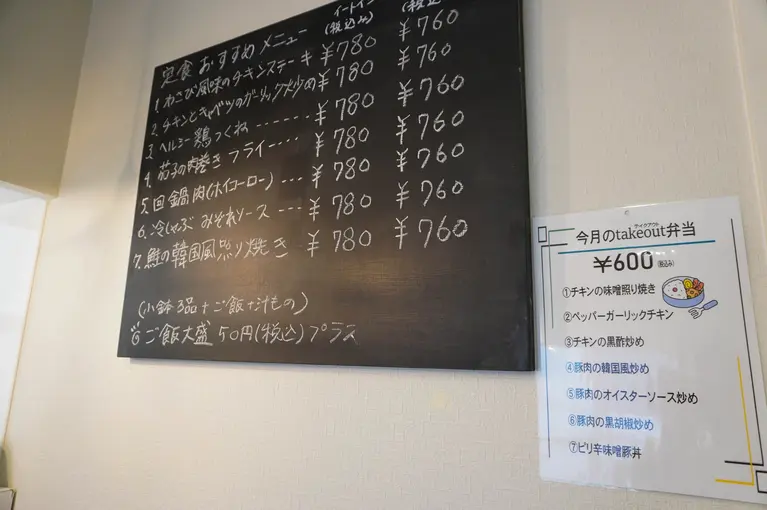 定食 おすすめ メニュー イートイン (税込み) (税込み)
1. わさび風味のチキンステーキ ¥780 ¥760
2. チキンとキャベツのガーリック炒め ¥780 ¥760
3. ヘルシー鶏つくね ------- ¥780 ¥760
4. 茄子の肉巻き フライ---- ¥780 ¥760
5. 回鍋肉(ホイコーロー) --- ¥780 ¥760
6. 冷しゃぶ みぞれソース --- ¥780 ¥760
7. 鮭の韓国風照り焼き ¥780 ¥760
(小鉢3品+ご飯+汁もの)
ご飯大盛 50円(税込)プラス
テイクアウト
今月のtakeout弁当
¥600 (税込み)
①チキンの味噌照り焼き
②ペッパーガーリックチキン
③チキンの黒酢炒め
④豚肉の韓国風炒め
⑤豚肉のオイスターソース炒め
⑥豚肉の黒胡椒炒め
⑦ピリ辛味噌豚丼